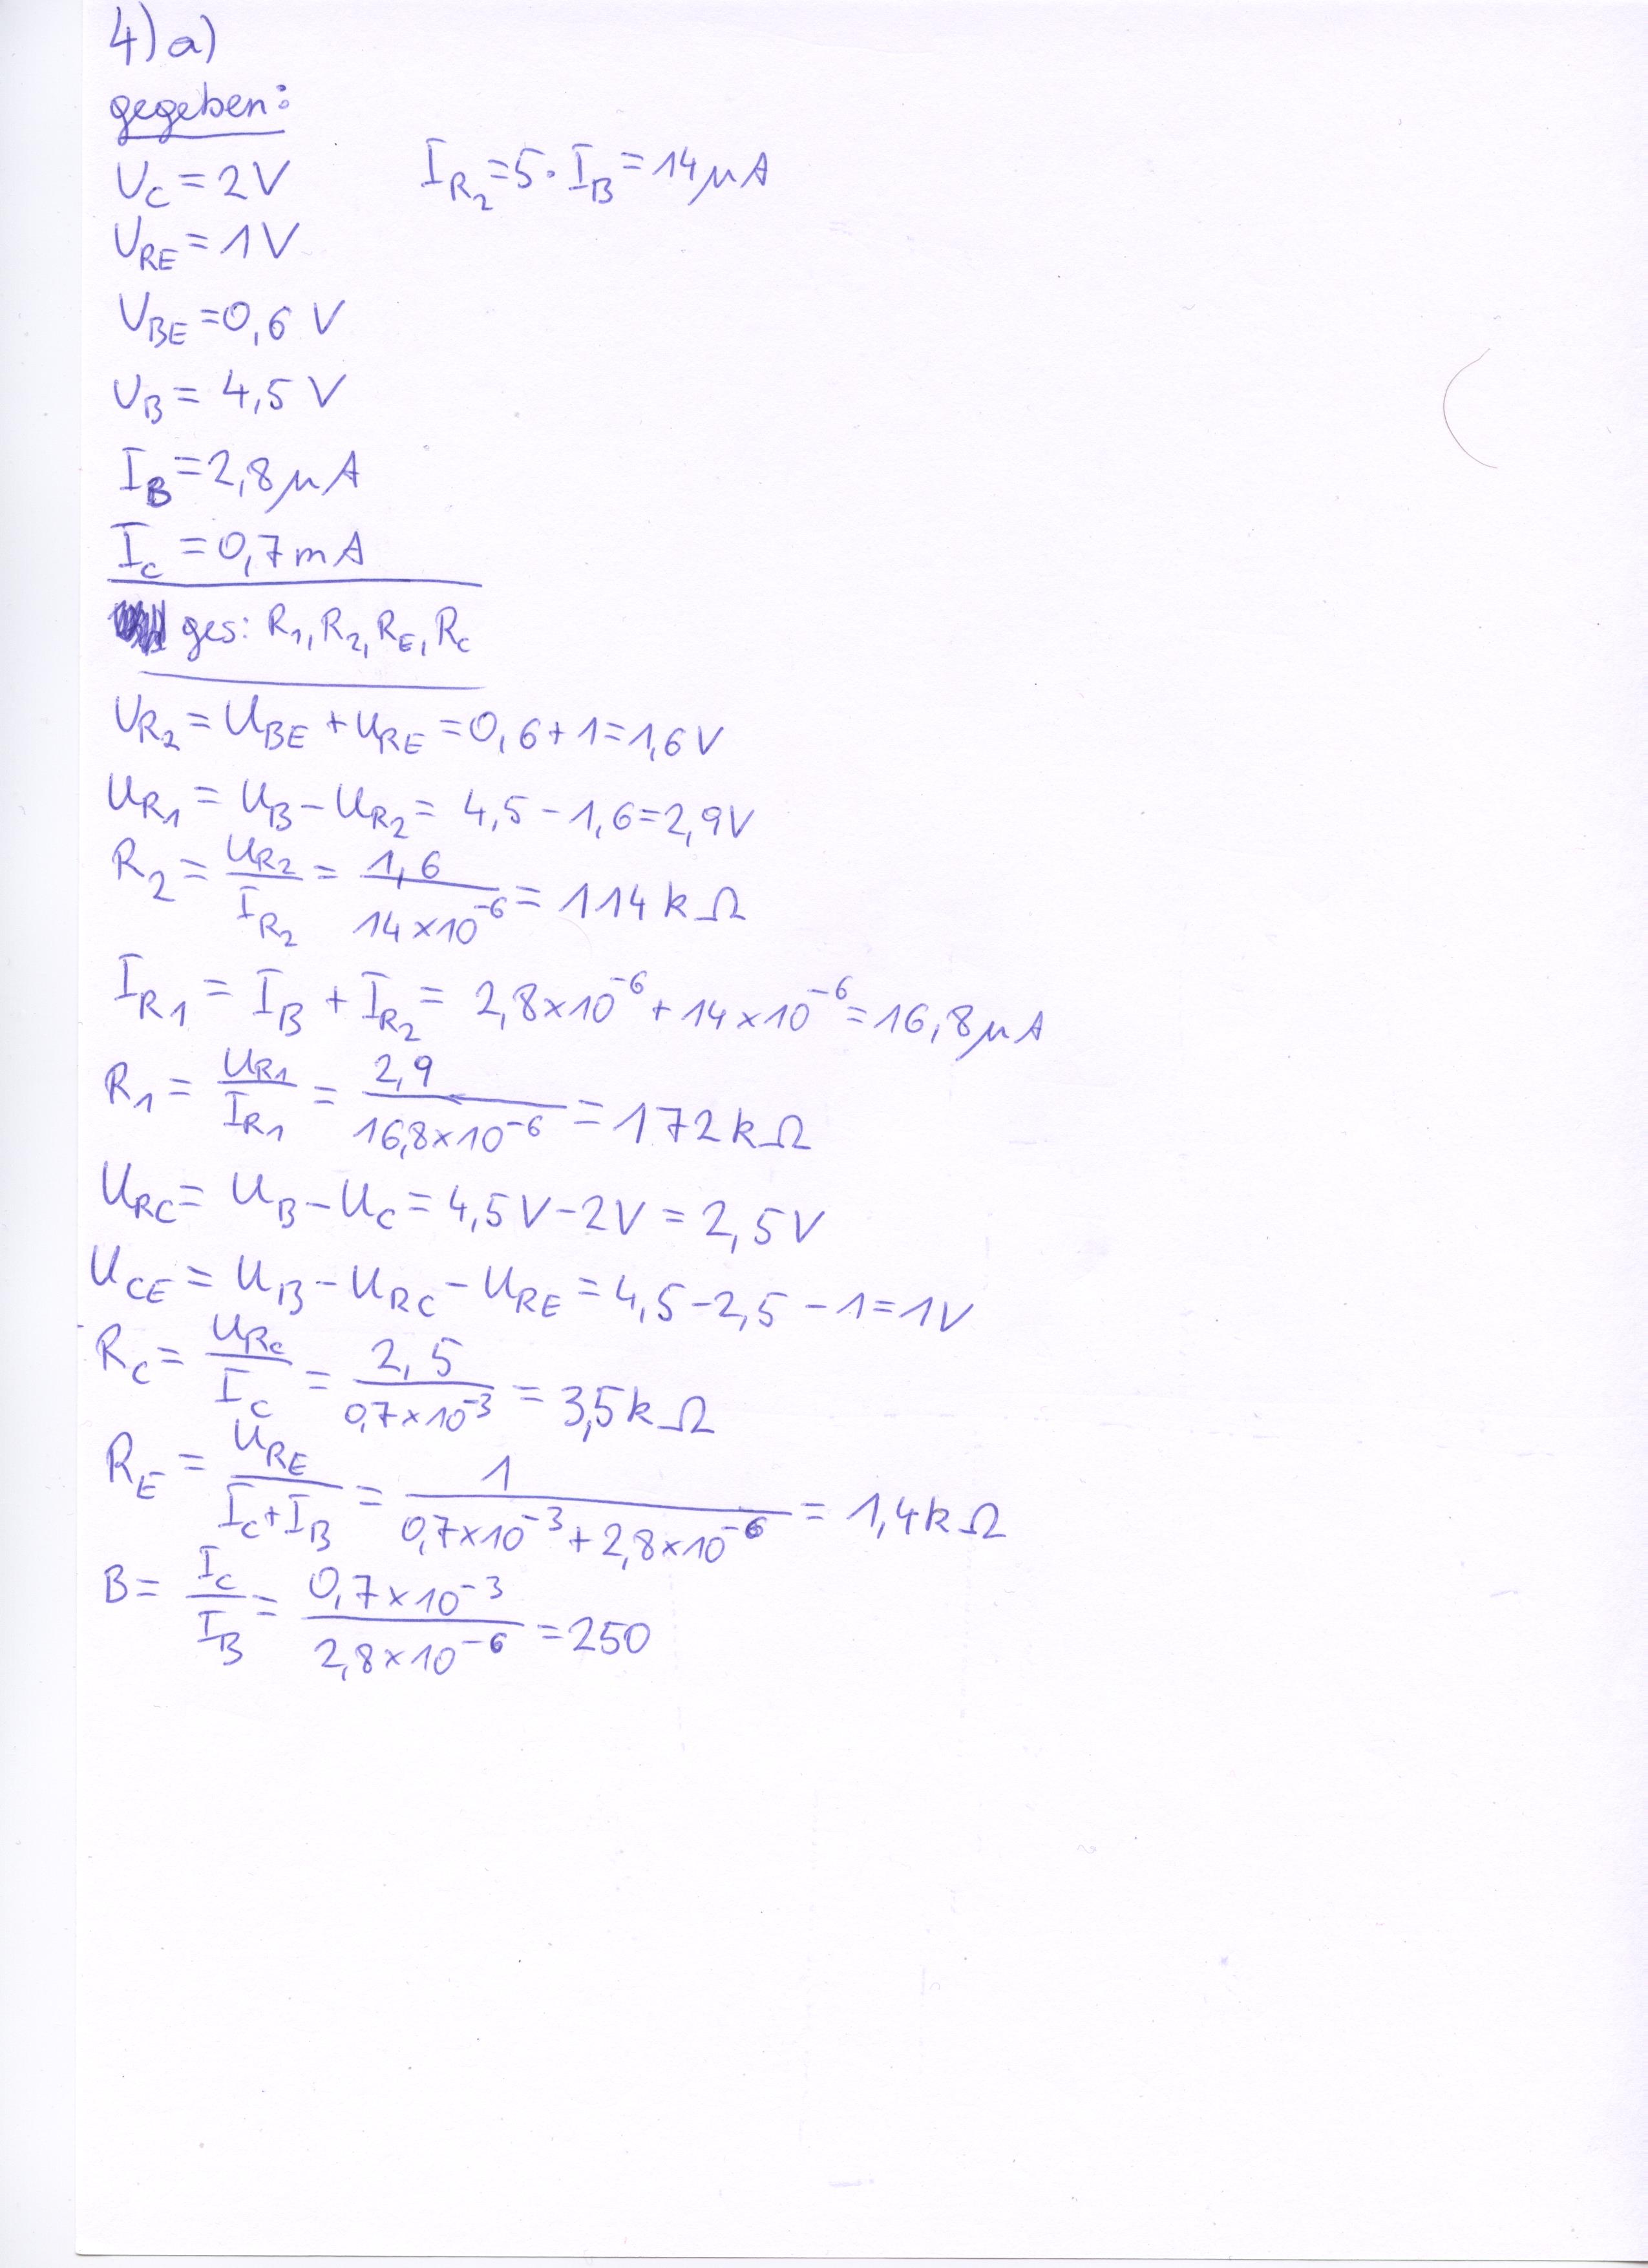 4) a)
gegeben:
U_C = 2V I_R2 = 5 · I_B = 14 µA
U_RE = 1V
U_BE = 0,6 V
U_B = 4,5 V
I_B = 2,8 µA
I_C = 0,7 mA
ges: R_1, R_2, R_E, R_C
U_R2 = U_BE + U_RE = 0,6 + 1 = 1,6 V
U_R1 = U_B - U_R2 = 4,5 - 1,6 = 2,9V
R_2 = U_R2 / I_R2 = 1,6 / 14×10^-6 = 114 kΩ
I_R1 = I_B + I_R2 = 2,8×10^-6 + 14×10^-6 = 16,8 µA
R_1 = U_R1 / I_R1 = 2,9 / 16,8×10^-6 = 172 kΩ
U_RC = U_B - U_C = 4,5 V - 2V = 2,5 V
U_CE = U_B - U_RC - U_RE = 4,5 - 2,5 - 1 = 1V
R_C = U_RC / I_C = 2,5 / 0,7×10^-3 = 3,5 kΩ
R_E = U_RE / I_C + I_B = 1 / 0,7×10^-3 + 2,8×10^-6 = 1,4 kΩ
B = I_C / I_B = 0,7×10^-3 / 2,8×10^-6 = 250